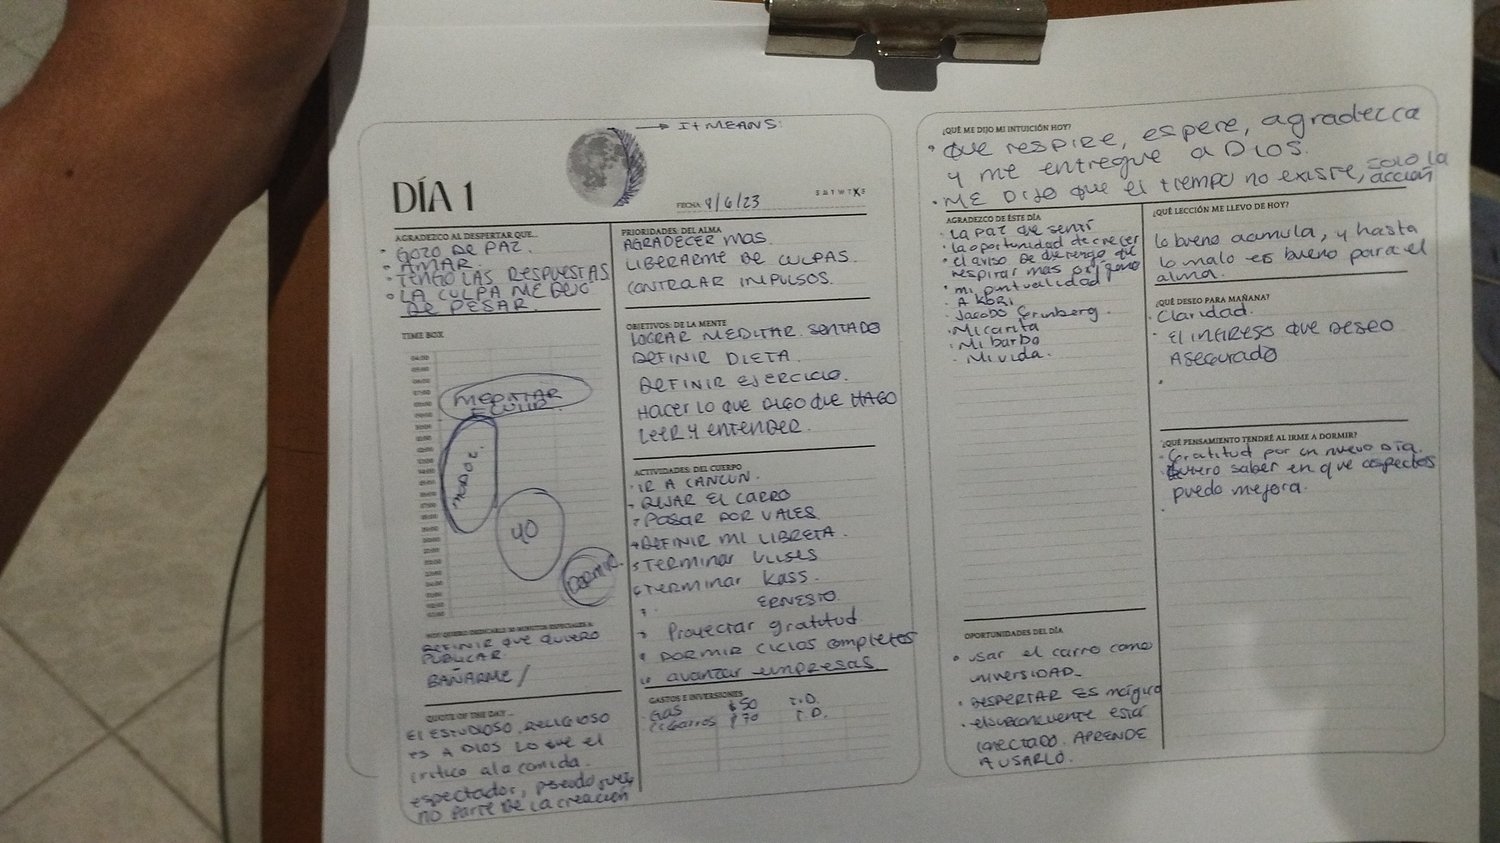 → IT MEANS:
DÍA 1
FECHA: 8/6/23
S M T W T F S
AGRADEZCO AL DESPERTAR QUE...
• GOZO DE PAZ.
• AMAR.
• TENGO LAS RESPUESTAS
• LA CULPA ME DEJÓ
DE PESAR
TIME BOX
MEDITAR
DORMIR
YO
HOY QUIERO DEDICARLE 30 MINUTOS ESPECIALES A:
DEFINIR QUE QUIERO
PUBLICAR.
BAÑARME /
QUOTE OF THE DAY...
El ESTUDIOSO, RELIGIOSO
es A DIOS LO que el
crítico a la comida.
espectador, pseudo juez
NO PARTE DE LA creación
PRIORIDADES: DEL ALMA
AGRADECER MAS.
LIBERARME DE CULPAS.
CONTROLAR IMPULSOS.
OBJETIVOS: DE LA MENTE
LOGRAR MEDITAR SENTADO
DEFINIR DIETA.
DEFINIR EJERCICIO.
HACER LO QUE DIGO QUE HAGO
LEER Y ENTENDER.
ACTIVIDADES: DEL CUERPO
• IR A CANCUN.
- DEJAR EL CARRO
- PASAR POR VALES
DEFINIR MI LIBRETA.
5 TERMINAR ULISES
6 TERMINAR KASS.
ERNESTO.
Proyectar gratitud
DORMIR CICLOS completos
10 avanzar empresas
GASTOS E INVERSIONES
GAS $50 T.D.
Cigarros $70 T.D.
¿QUÉ ME DIJO MI INTUICIÓN HOY?
• Que respire, espere, agradezca
y me entregue a DIOS.
• ME DIJO que el tiempo no existe, solo la
acción
AGRADEZCO DE ÉSTE DÍA
• La paz que sentí
• la oportunidad de crecer
• el aviso de que tengo que
respirar mas oxígeno
• mi puntualidad
• A KORI
• Jacobo Grinberg.
• Mi carita
• Mi barba
- Mi vida.
OPORTUNIDADES DEL DÍA
• usar el carro como
universidad.
• DESPERTAR ES mágico
• el subconciente está
conectado. APRENDE
A USARLO.
¿QUÉ LECCIÓN ME LLEVO DE HOY?
lo bueno acumula, y hasta
lo malo es bueno para el
alma.
¿QUÉ DESEO PARA MAÑANA?
• Claridad.
• El ingreso que deseo
asegurado
•
¿QUÉ PENSAMIENTO TENDRÉ AL IRME A DORMIR?
• Gratitud por un nuevo DÍA.
• Quiero saber en que aspectos
puedo mejorar.